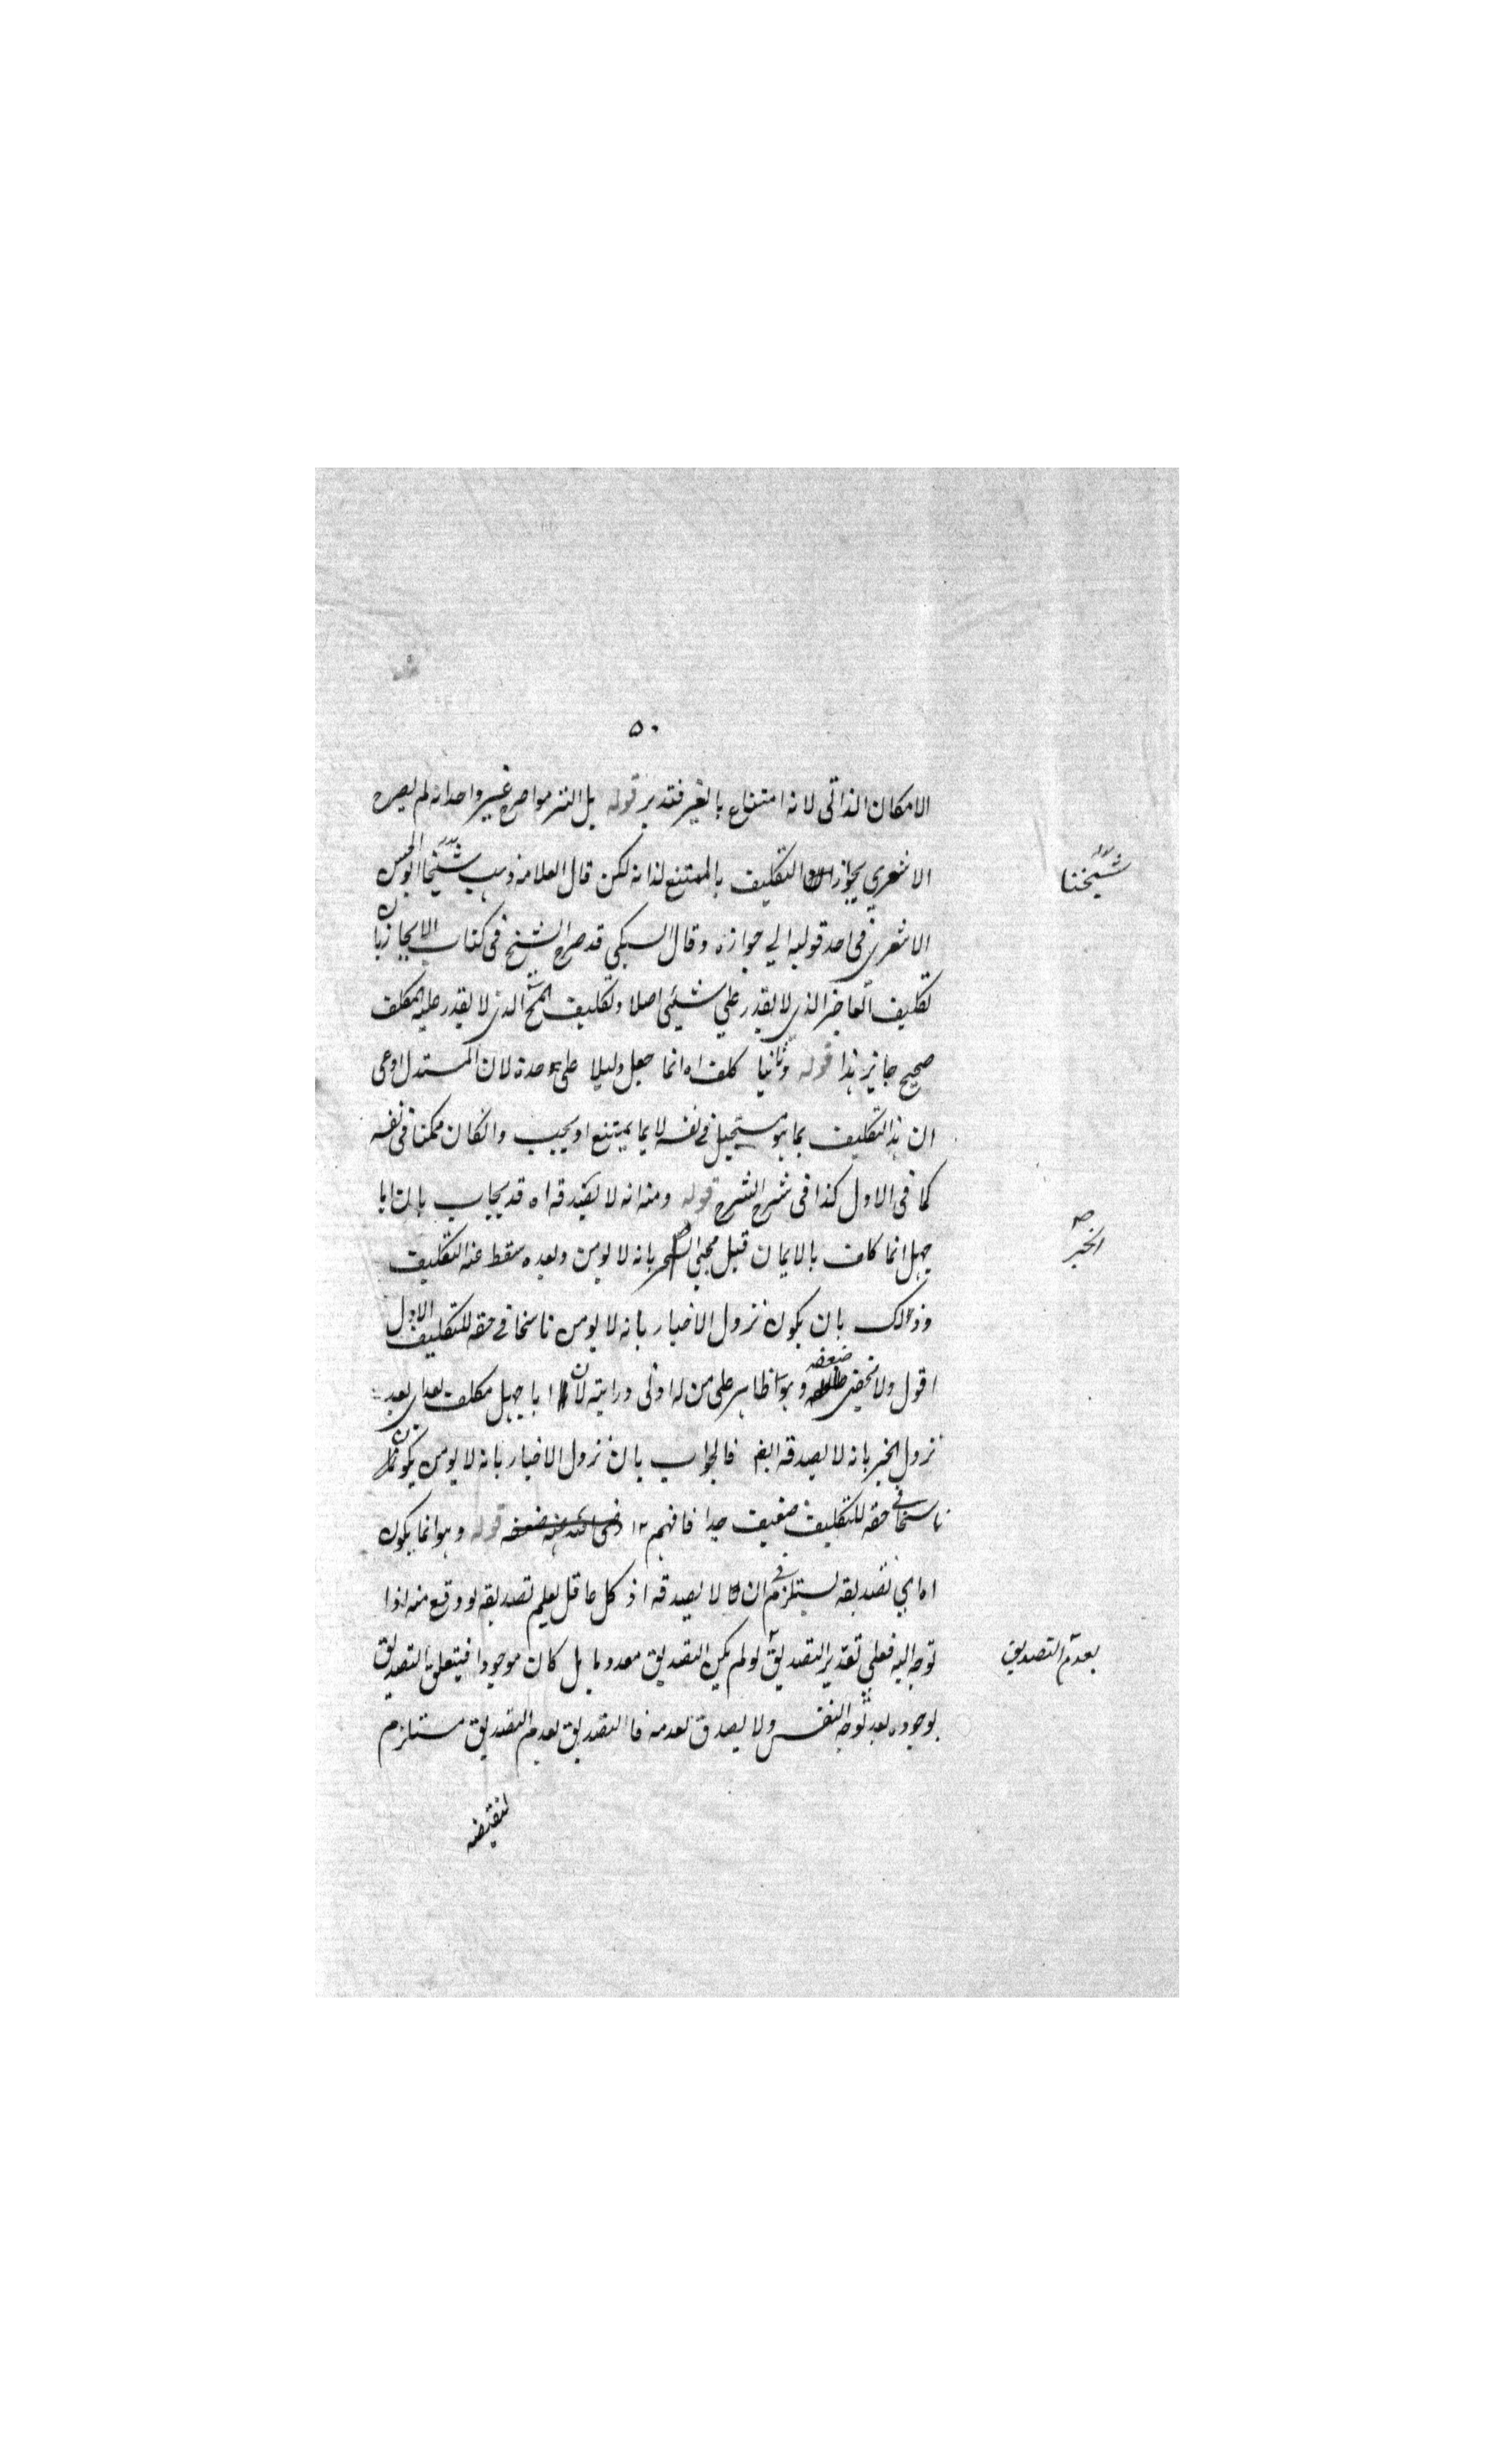 ٥٠
الامكان الذاتى لانه امتناع بالغير فتدبر قوله بل التزموا صرح غير واحد انه لم يصرح
الاشعري بجواز التكليف بالممتنع لذاته لكن قال العلامة ذهب شيخنا ابو الحسن
شيخنا
الاشعرى فى احد قوليه الي جوازه وقال السبكى قد صرح الشيخ فى كتاب الايجاز بان
تكليف العاجز الذى لا يقدر على شيئى اصلا وتكليف المح الذى لا يقدر عليه المكلف
صحيح جايز هذا قوله وثانيا كلف اه انما جعل دليلا على حدة لان المستدل ادعى
ان هذا التكليف بما هو مستحيل فى نفسه لا بما يمتنع او يجب وانكان ممكنا فى نفسه
كما فى الاول كذا فى شرح الشرح قوله ومنه انه لا يصدقه اه قد يجاب بان ابا
جهل انما كلف بالايمان قبل مجئي بانه لا يومن وبعده سقط عنه التكليف
الخبر صح
وذالك بان يكون نزول الاخبار بانه لا يومن ناسخا فى حقه للتكليف الاول
اقول ولا يخفى ضعفه وهو ظاهر على من له ادنى دراية لان ابا جهل مكلف بعد
نزول الخبر بانه لا يصدقه ايضم فالجواب بان نزول الاخبار بانه لا يومن يكون
ناسخا فى حقه للتكليف ضعيف جدا فافهم ١٢ قوله وهو انما يكون
اه اي تصديقه يستلزم فى ان لا يصدقه اذ كل عاقل يعلم تصديقه لو وقع منه اذا
توجه اليه فعلى تقدير التصديق لو لم يكن التصديق معدوما بل كان موجودا فيتعلق التصديق
بعدم التصديق
بوجوده بعد توجه النفس ولا يصدق بعدمه فالتصديق بعدم التصديق مستلزم
لنقيضه